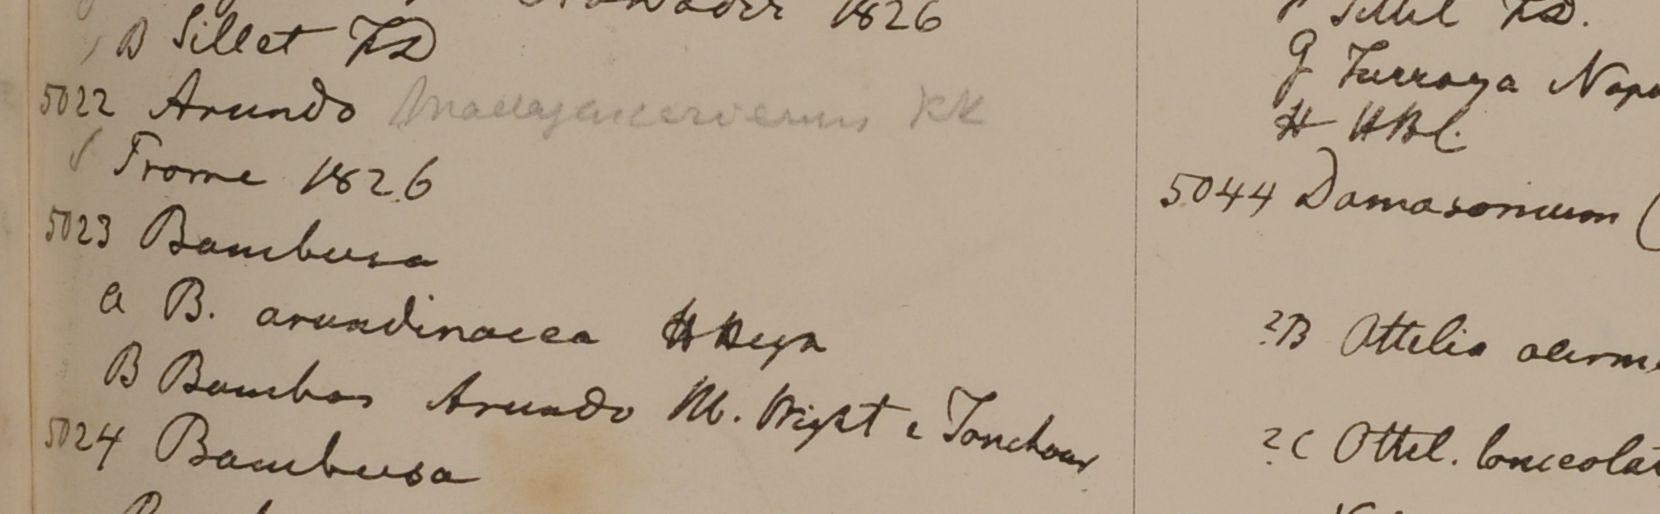 1826
B Sillet FD
5022 Arundo
Frome 1826
5023 Bambusa
a B. arundinacea HHeyn
B Bambos Arundo M. Wight e Tanchour
5024 Bambusa
Sillet FD.
g Turraya Napa
H HBC.
5044 Damasonium (
?B Ottelia
?C Ottel. lanceolat